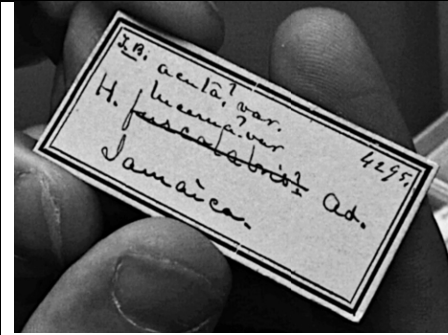 I.B. acuta? var.
lucerna? var
H. fuscolabris? Ad.
Jamaica.
4295.